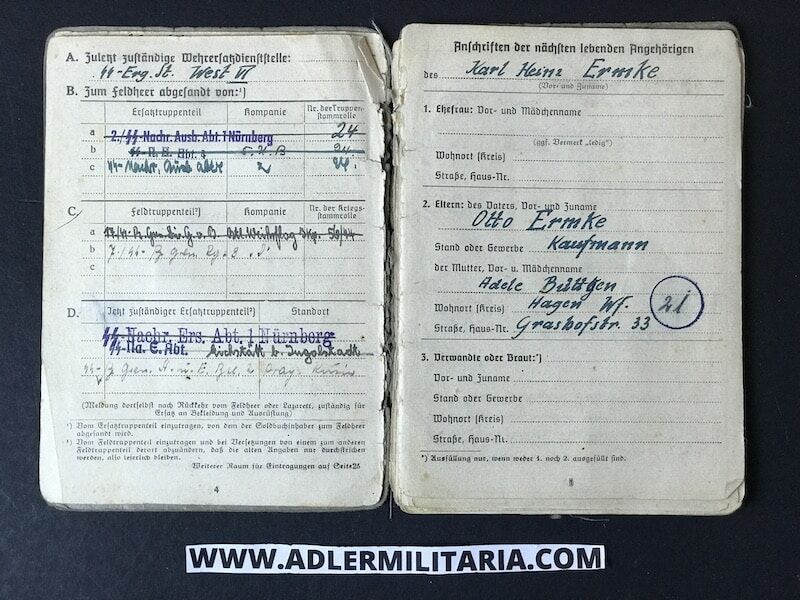 A. Zuletzt zuständige Wehrersatzdienststelle:
SS-Erg. St. West VI
B. Zum Feldheer abgesandt von:¹)
Ersatztruppenteil
Kompanie
Nr. der Truppenstammrolle
a 2./SS-Nachr. Ausb. Abt. 1 Nürnberg 24
b
c SS-Nachr. 2
C. Feldtruppenteil²)
Kompanie
Nr. der Kriegsstammrolle
a
b
c
D. Jetzt zuständiger Ersatztruppenteil²)
Standort
SS-Nachr. Ers. Abt. 1 Nürnberg
SS-Na. E. Abt. Eichstätt b. Ingolstadt
(Meldung dortselbst nach Rückkehr vom Feldheer oder Lazarett, zuständig für
Ersatz an Bekleidung und Ausrüstung)
¹) Vom Ersatztruppenteil einzutragen, von dem der Soldbuchinhaber zum Feldheer
abgesandt wird.
²) Vom Feldtruppenteil einzutragen und bei Versetzungen von einem zum anderen
Feldtruppenteil derart abzuändern, daß die alten Angaben nur durchstrichen
werden, also leserlich bleiben.
Weiterer Raum für Eintragungen auf Seite
4
Anschriften der nächsten lebenden Angehörigen
des Karl Heinz Ermke
(Vor- und Zuname)
1. Ehefrau: Vor- und Mädchenname
(ggf. Vermerk „ledig")
Wohnort (Kreis)
Straße, Haus-Nr.
2. Eltern: des Vaters, Vor- und Zuname
Otto Ermke
Stand oder Gewerbe Kaufmann
der Mutter, Vor- u. Mädchenname
Adele Büttgen
Wohnort (Kreis) Hagen Wf.
21
Straße, Haus-Nr. Grashofstr. 33
3. Verwandte oder Braut:*)
Vor- und Zuname
Stand oder Gewerbe
Wohnort (Kreis)
Straße, Haus-Nr.
*) Ausfüllung nur, wenn weder 1. noch 2. ausgefüllt sind.
5
WWW.ADLERMILITARIA.COM